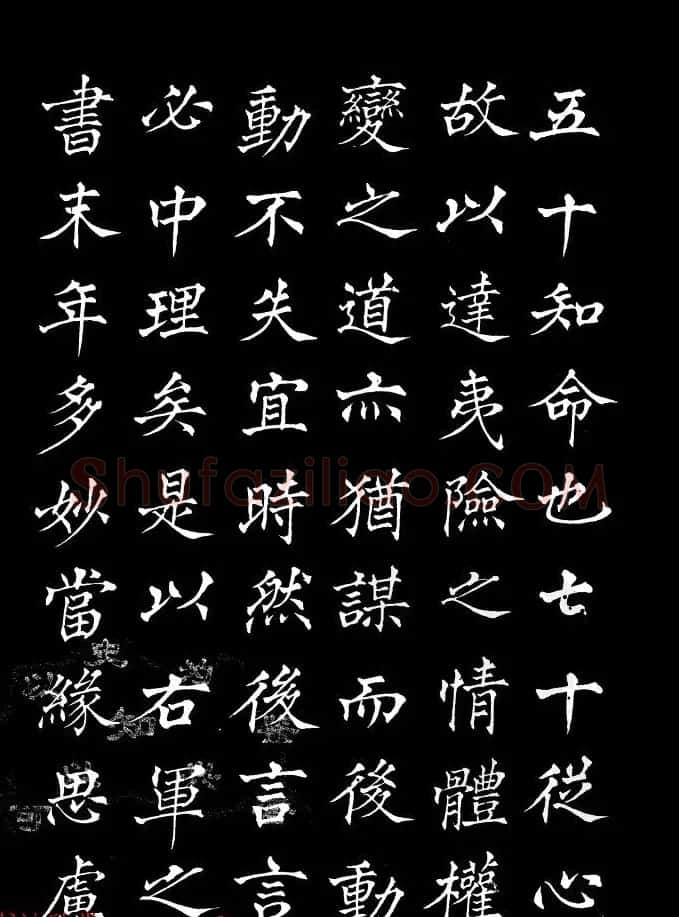 五十知命也七十從心
故以達夷險之情體權
變之道亦猶謀而後動
動不失宜時然後言言
必中理矣是以右軍之
書末年多妙當緣思慮
Shufaziliao.COM